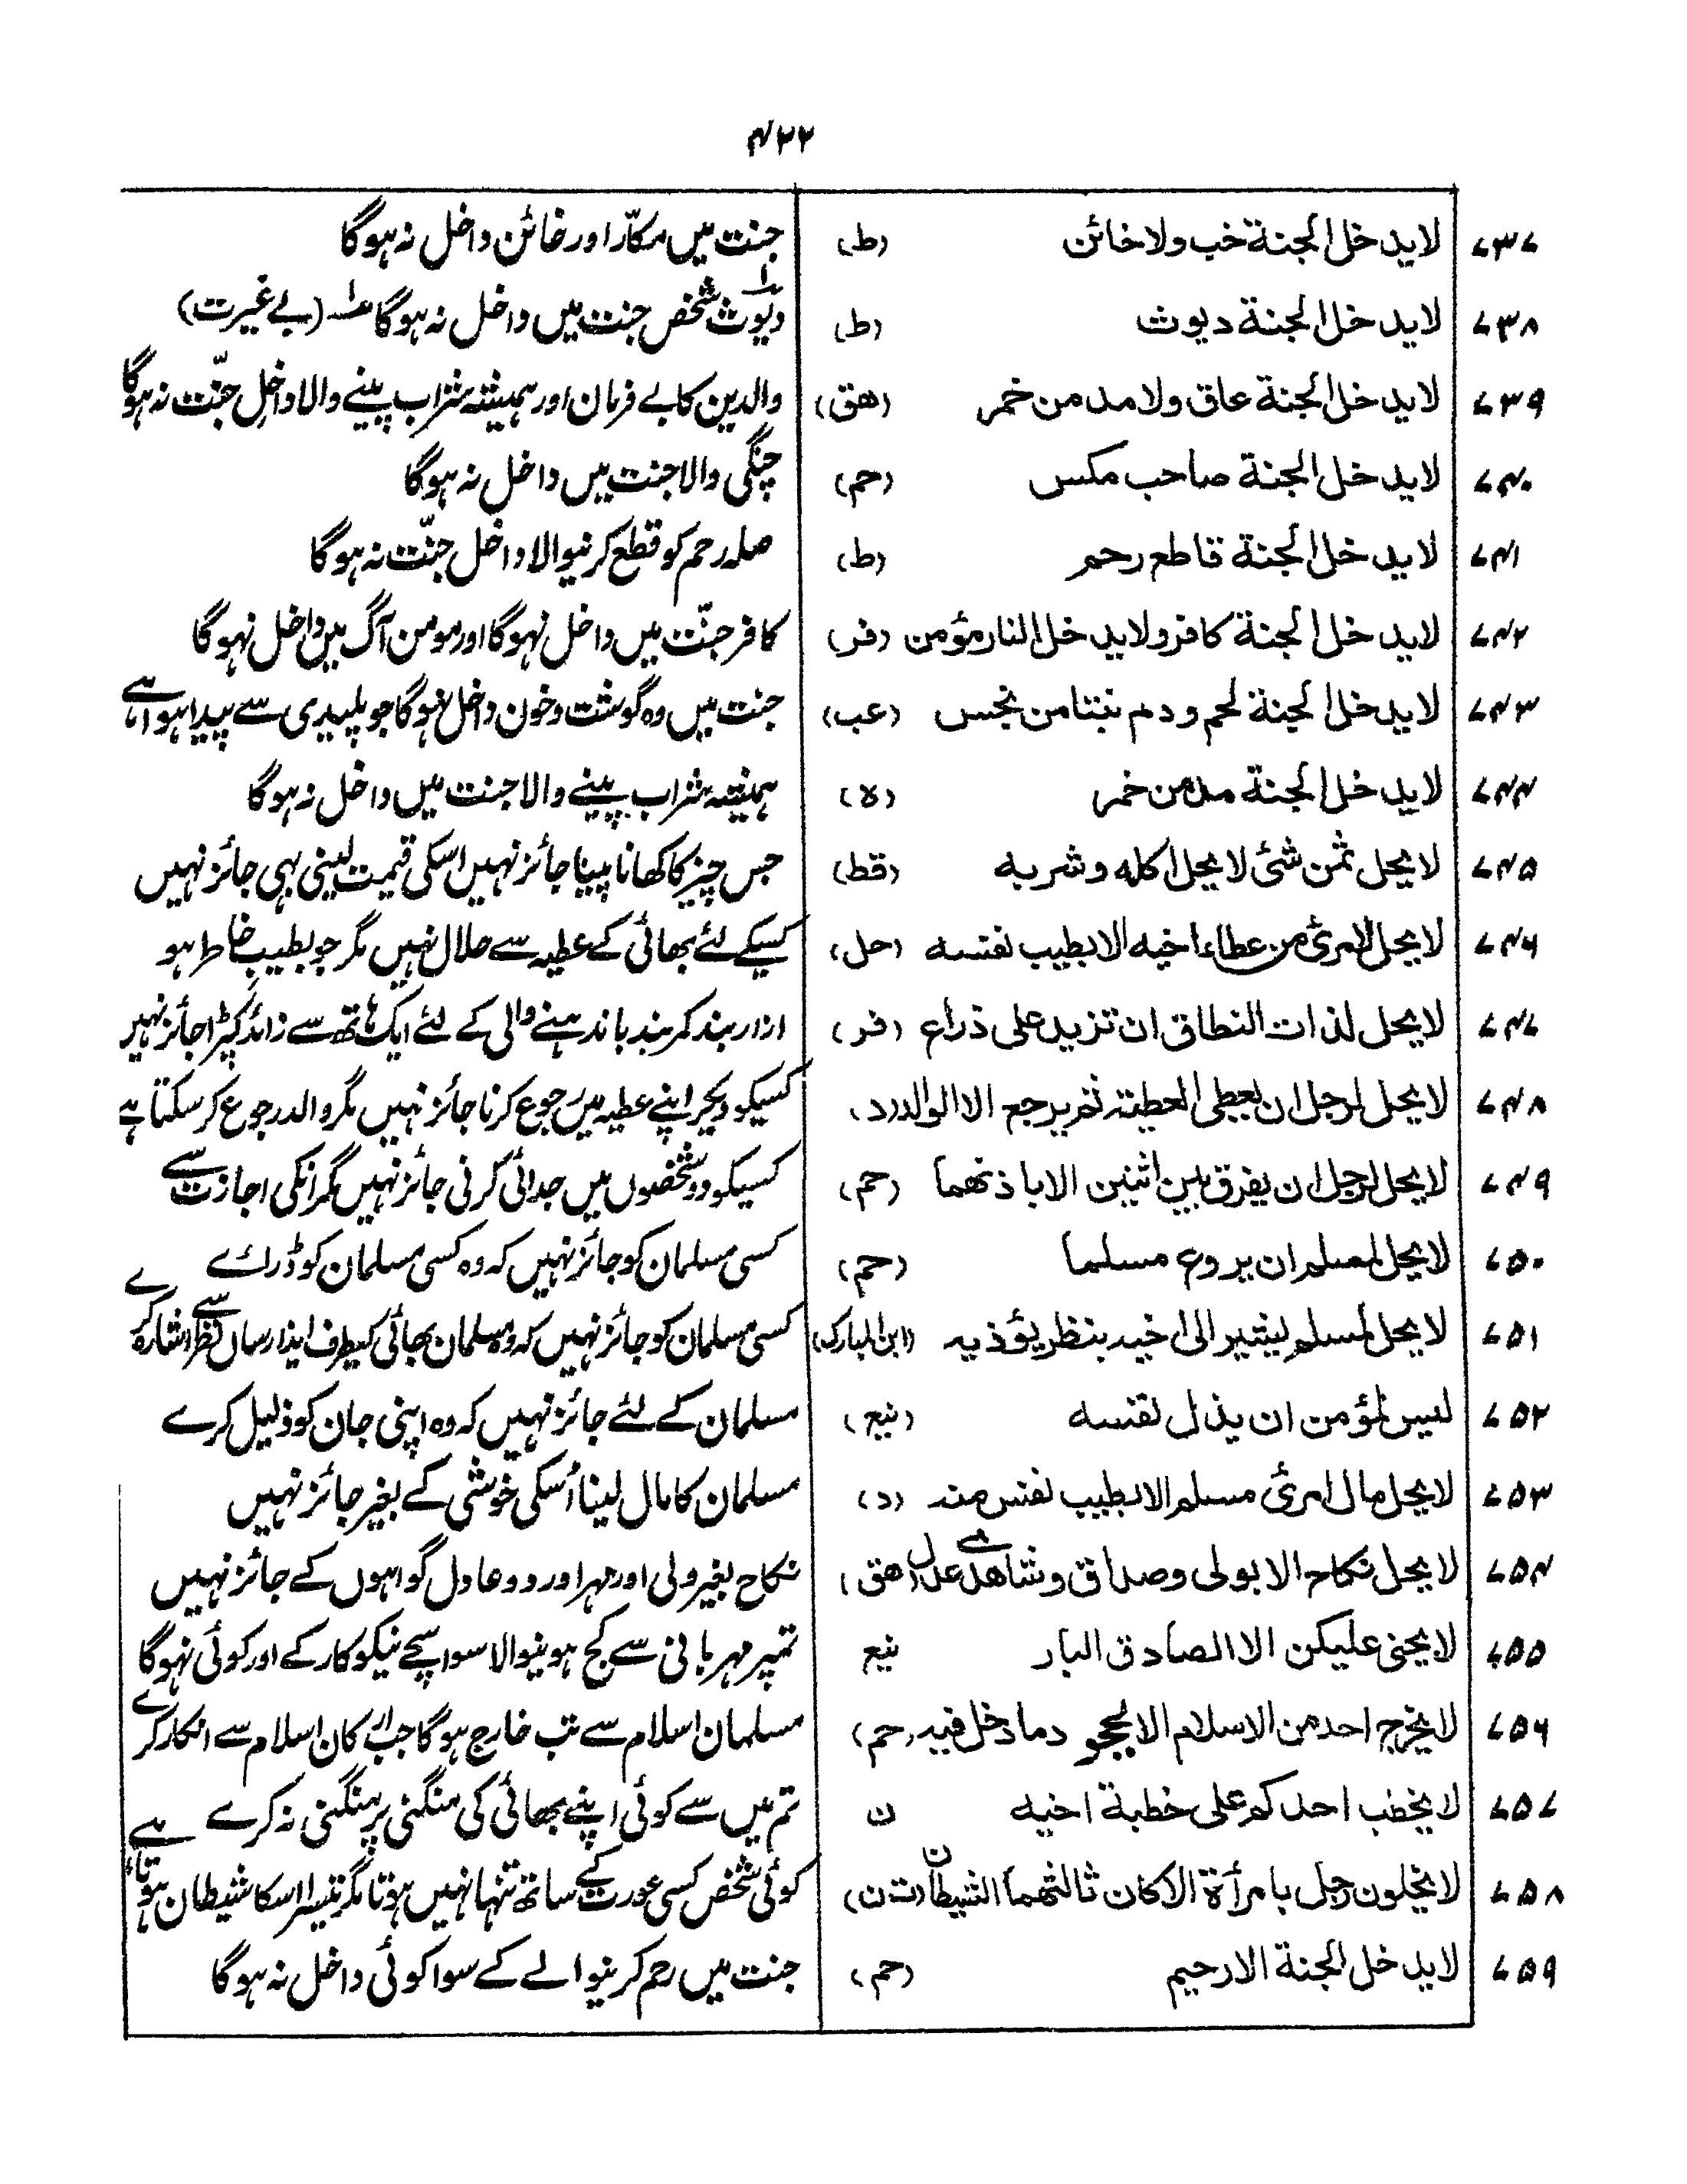 ۴۲۲
۷۳۷ لا يدخل الجنة خب ولا خائن (ط) جنت میں مکّار اور خائن داخل نہ ہوگا
۷۳۸ لا يدخل الجنة ديوث (ط) دیّوث شخص جنت میں داخل نہ ہوگا ؎۱ (بے غیرت)
۷۳۹ لا يدخل الجنة عاق ولا مدمن خمر (هق) والدین کا بے فرمان اور ہمیشہ شراب پینے والا داخلِ جنّت نہ ہوگا
۷۴۰ لا يدخل الجنة صاحب مكس (حم) چنگی والا جنت میں داخل نہ ہوگا
۷۴۱ لا يدخل الجنة قاطع رحم (ط) صلہ رحم کو قطع کرنیوالا داخل جنّت نہ ہوگا
۷۴۲ لا يدخل الجنة كافر ولا يدخل النار مؤمن (فر) کافر جنّت میں داخل نہوگا اور مومن آگ میں داخل نہوگا
۷۴۳ لا يدخل الجنة لحم ودم نبتا من نجس (عب) جنت میں وہ گوشت و خون داخل نہوگا جو پلیدی سے پیدا ہوا ہے
۷۴۴ لا يدخل الجنة مدمن خمر (ه) ہمیشہ شراب پینے والا جنت میں داخل نہ ہوگا
۷۴۵ لا يحل ثمن شئ لا يحل اكله وشربه (قط) جس چیز کا کھانا پینا جائز نہیں اسکی قیمت لینی بہی جائز نہیں
۷۴۶ لا يحل لامرئ من عطاء اخيه الا بطيب نفسه (حل) کسیکے لئے بھائی کے عطیہ سے حلال نہیں مگر جو بطیبِ خاطر ہو
۷۴۷ لا يحل لذات النطاق ان تزيد على ذراع (فر) ازار بند کمر بند باندہنے والی کے لئے ایک ہاتھ سے زائد کپڑا جائز نہیں
۷۴۸ لا يحل لرجل ان يعطى العطية ثم يرجع الا الوالد (د) کسیکو دیکر اپنے عطیہ میں رجوع کرنا جائز نہیں مگر والد رجوع کر سکتا ہے
۷۴۹ لا يحل لرجل ان يفرق بين اثنين الا باذنهما (حم) کسیکو دو شخصوں میں جدائی کرنی جائز نہیں مگر انکی اجازت سے
۷۵۰ لا يحل لمسلم ان يروع مسلما (حم) کسی مسلمان کو جائز نہیں کہ وہ کسی مسلمان کو ڈرائے
۷۵۱ لا يحل لمسلم يشير الى اخيه بنظر يؤذيه (ابن المبارک) کسی مسلمان کو جائز نہیں کہ وہ مسلمان بھائی کیطرف ایذا رساں نظر سے اشارہ کرے
۷۵۲ ليس لمؤمن ان يذل نفسه (نيع) مسلمان کے لئے جائز نہیں کہ وہ اپنی جان کو ذلیل کرے
۷۵۳ لا يحل مال امرئ مسلم الا بطيب نفس منه (د) مسلمان کا مال لینا اُسکی خوشی کے بغیر جائز نہیں
۷۵۴ لا يحل نكاح الا بولى وصداق وشاهدى عدل (هق) نکاح بغیر ولی اور مہر اور دو عادل گواہوں کے جائز نہیں
۷۵۵ لا يحنى عليكن الا الصادق البار نيع تمپر مہربانی سے کج ہونیوالا سوا سچے نیکوکار کے اور کوئی نہوگا
۷۵۶ لا يخرج احد من الاسلام الا بجحود ما دخل فيه (حم) مسلمان اسلام سے تب خارج ہوگا جب ارکان اسلام سے انکار کرے
۷۵۷ لا يخطب احدكم على خطبة اخيه ن تم میں سے کوئی اپنے بھائی کی منگنی پر منگنی نہ کرے
۷۵۸ لا يخلون رجل بامرأة الا كان ثالثهما الشيطان (ت ن) کوئی شخص کسی عورت کے ساتھ تنہا نہیں ہوتا مگر تیسرا اسکا شیطان ہوتا ہے
۷۵۹ لا يدخل الجنة الا رحيم (حم) جنت میں رحم کرنیوالے کے سوا کوئی داخل نہ ہوگا